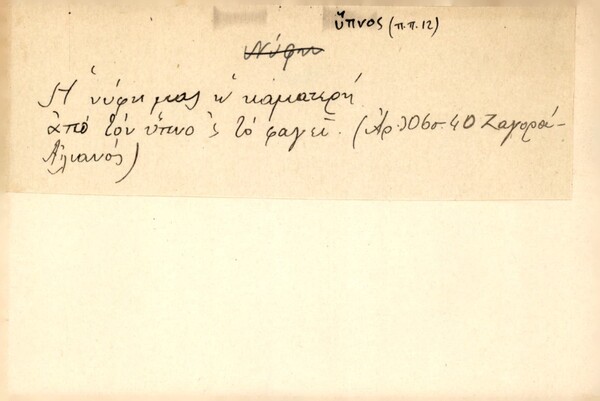 ὕπνος (π.π. 12)
Νύφη
Ἡ νύφη μας ἡ καματερή
ἀπό τόν ὕπνο ς τό φαγεῖ. (Ἀρ. 306 σ. 40 Ζαγορά-
Ἁλιανός)